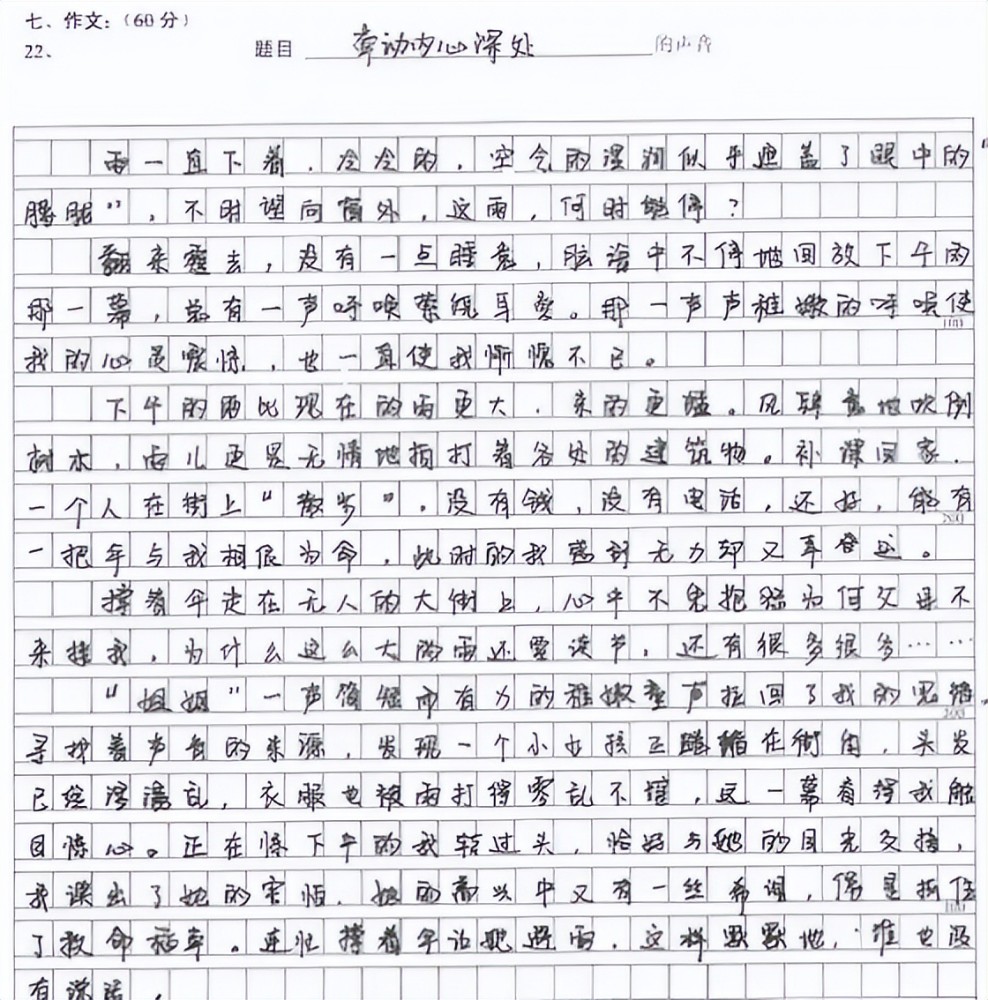 七、作文：（60分）
22、 题目 牵动内心深处
雨一直下着，冷冷的，空气的湿润似乎遮盖了眼中的“
朦胧”，不时望向窗外，这雨，何时能停？
翻来覆去，没有一点睡意，脑海中不停地回放下午的
那一幕，总有一声呼唤萦绕耳旁。那一声声稚嫩的呼唤使
100
我的心灵震惊，也一直使我惭愧不已。
下午的雨比现在的雨更大，来的更猛。风肆意地吹倒
树木，雨儿更是无情地拍打着各处的建筑物。补课回家，
一个人在街上“散步”，没有钱，没有电话，还好，能有
200
一把伞与我相依为命，此时的我感到无力却又
撑着伞走在无人的大街上，心中不免抱怨为何父母不
来接我，为什么这么大的雨还要读书，还有很多很多……
“姐姐”一声简短而有力的稚嫩童声拉回了我的思绪，
300
寻找着声音的来源，发现一个小女孩正蜷缩在街角，头发
已经湿乱，衣服也被雨打得零乱不堪，这一幕看得我触
目惊心。正在惊下午的我转过头，恰好与她的目光交接，
我读出了她的害怕，她的高兴中又有一丝希望，像是抓住
400
了救命稻草。连忙撑着伞让她避雨，这样默默地，谁也没
有说话，